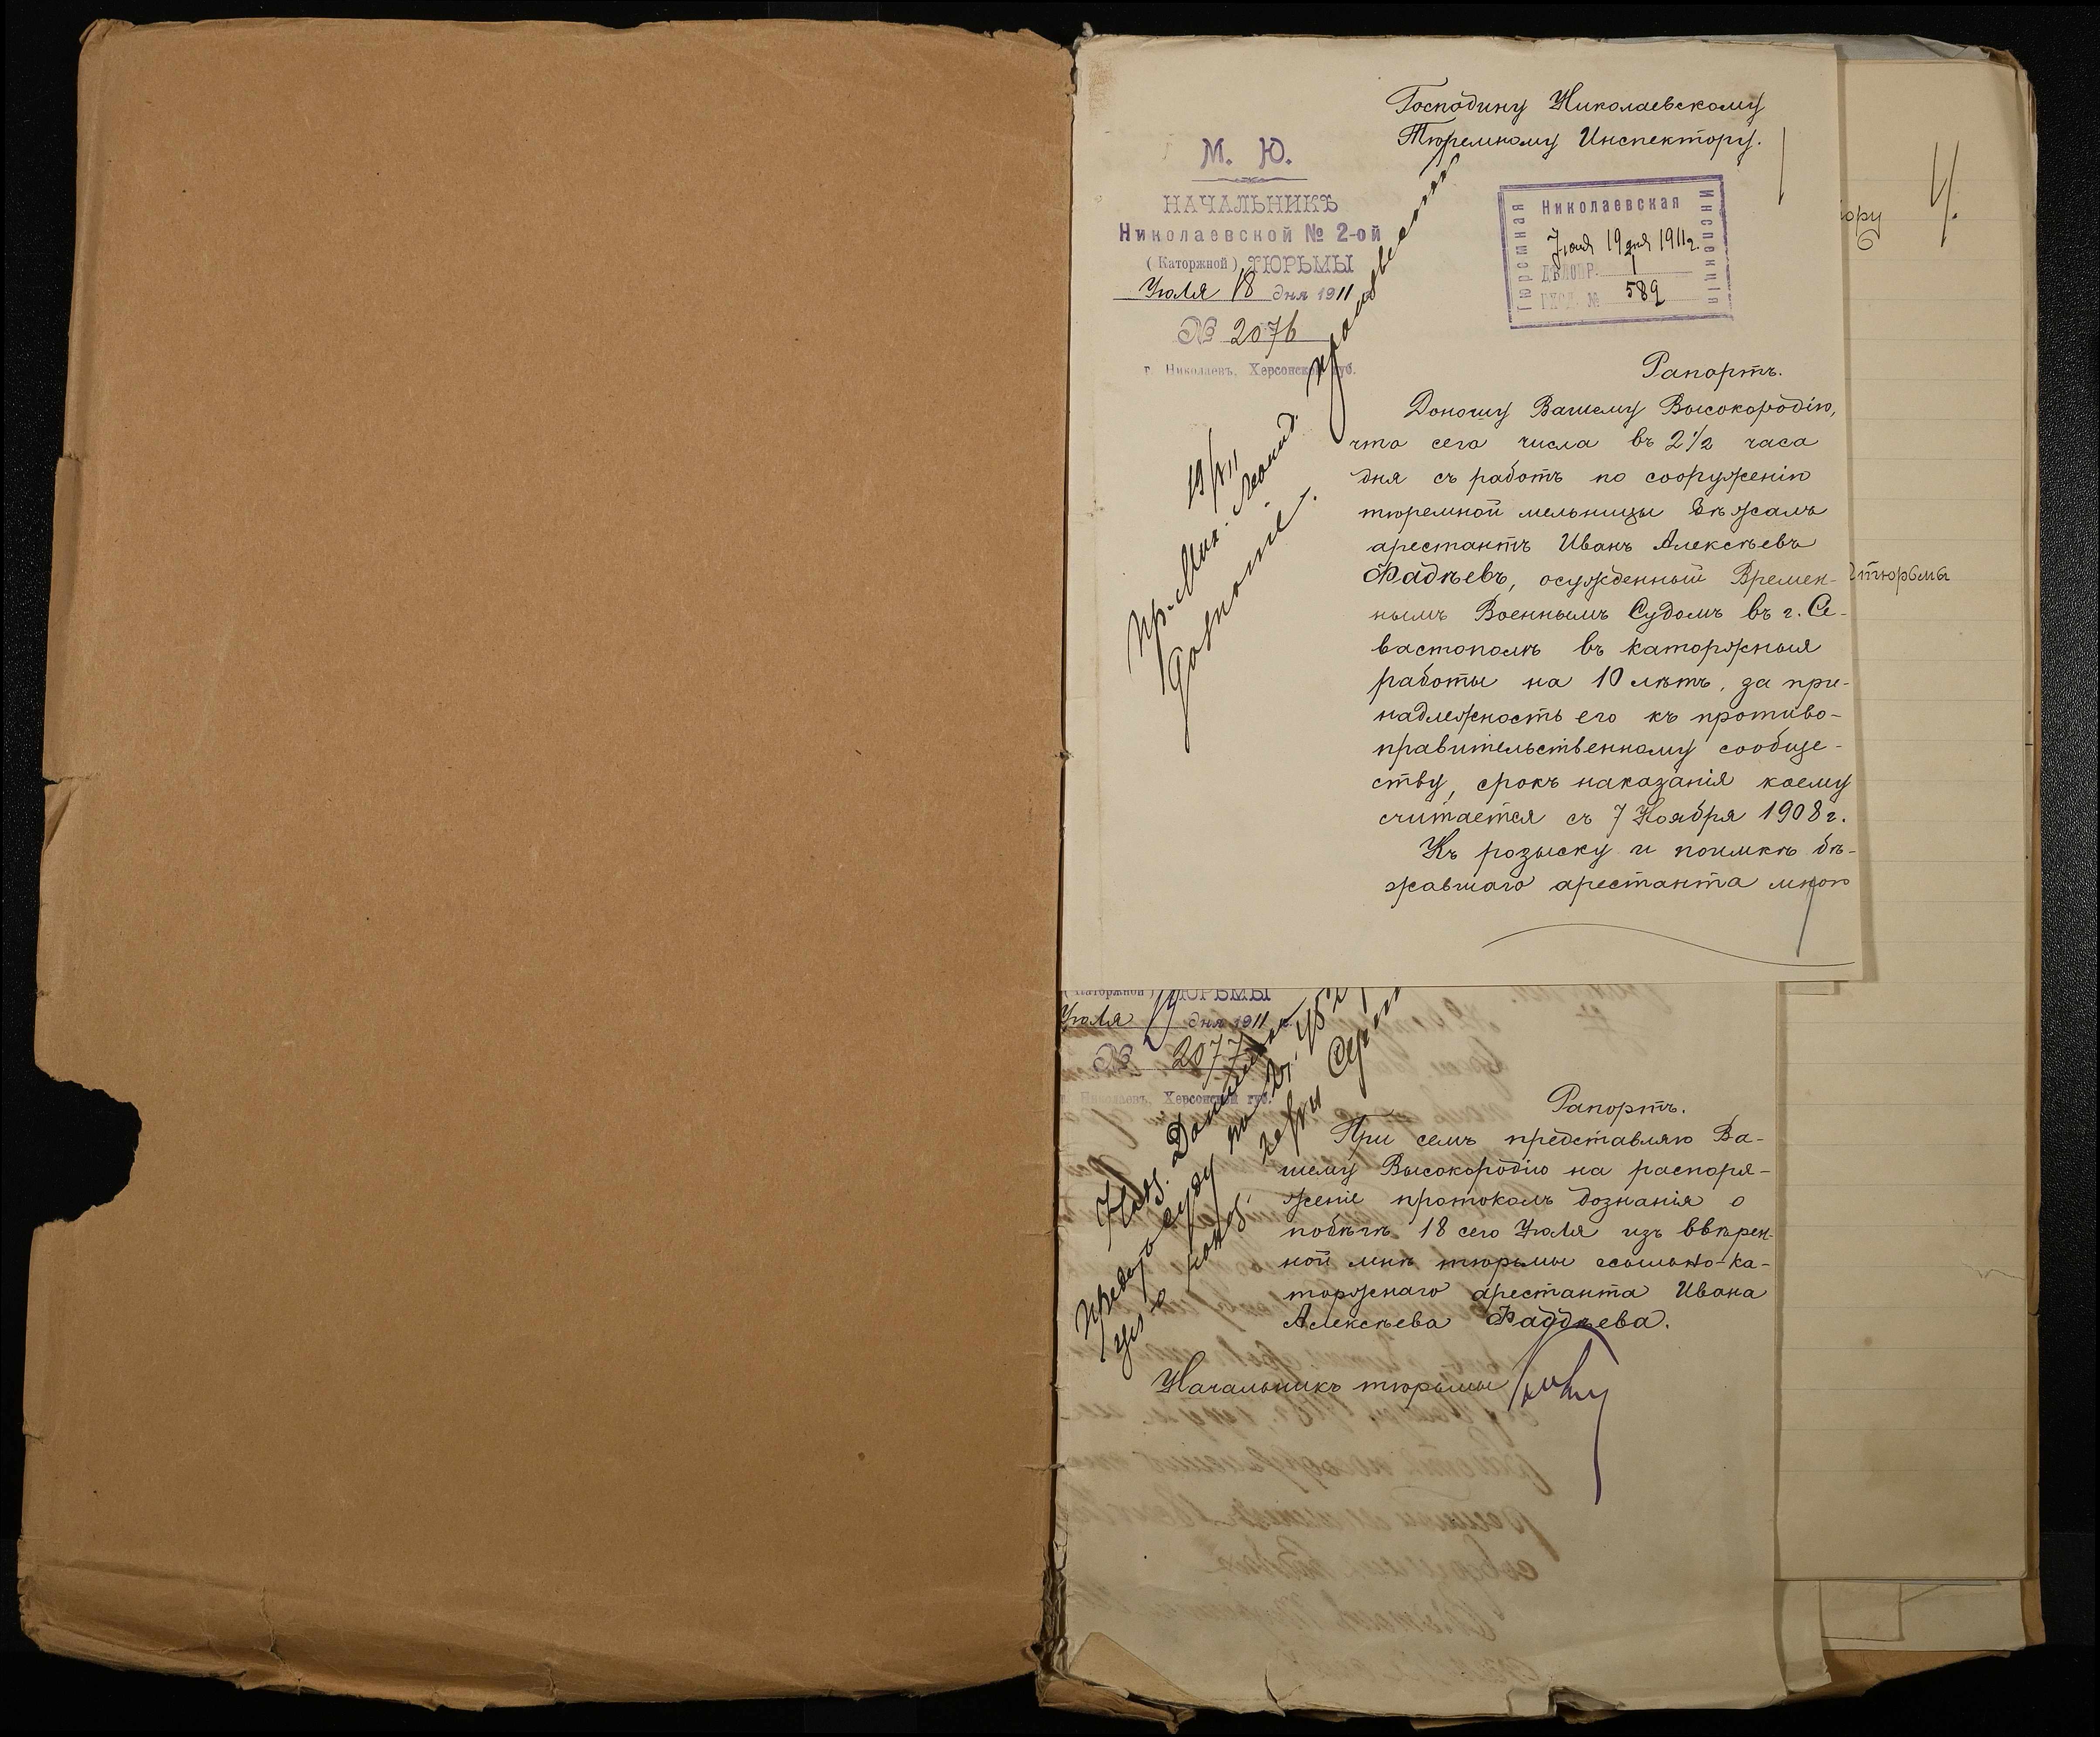 Господину Николаевскому
Тюремному Инспектору.
М. Ю.
НАЧАЛЬНИКЪ
Николаевской № 2-ой
(Каторжной) ТЮРЬМЫ
Іюля 18 дня 1911
№ 2076
г. Николаевъ, Херсонской губ.
Николаевская
Тюремная
Инспекція
Іюля 19 дня 1911 г.
ДѢЛОПР. 1
№ 589
Рапортъ.
Доношу Вашему Высокородію,
что сего числа въ 2 1/2 часа
дня съ работъ по сооруженію
тюремной мельницы бѣжалъ
арестантъ Иванъ Алексѣевъ
Фадѣевъ, осужденный Времен-
нымъ Военнымъ Судомъ въ г. Се-
вастополѣ въ каторжныя
работы на 10 лѣтъ, за при-
надлежность его къ противо-
правительственному сообще-
ству, срокъ наказанія коему
считается съ 7 Ноября 1908 г.
Къ розыску и поимкѣ бѣ-
жавшаго арестанта мною
4.
ору
тюрьмы
(Каторжной) ТЮРЬМЫ
Іюля 19 дня 1911 г.
№ 2077
Николаевъ, Херсонской губ.
Рапортъ.
При семъ представляю Ва-
шему Высокородію на распоря-
женіе протоколъ дознанія о
побѣгѣ 18 сего Іюля изъ ввѣрен-
ной мнѣ тюрьмы ссыльно-ка-
торжнаго арестанта Ивана
Алексѣева Фаддѣева.
Начальникъ тюрьмы